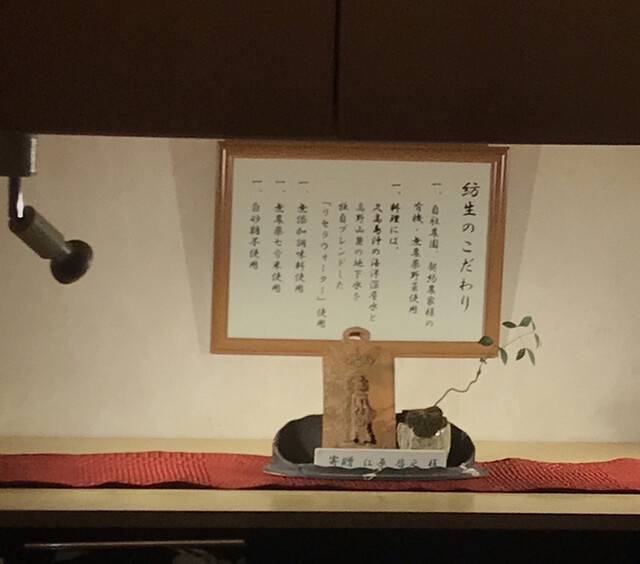 紡生のこだわり
一、自社農園、契約農家様の
有機・無農薬野菜使用
一、料理には、
久高島沖の海洋深層水と
高野山麓の地下水を
独自ブレンドした
「リセラウォーター」使用
一、無添加調味料使用
一、無農薬七分米使用
一、白砂糖不使用
寄贈 江原 啓之 様